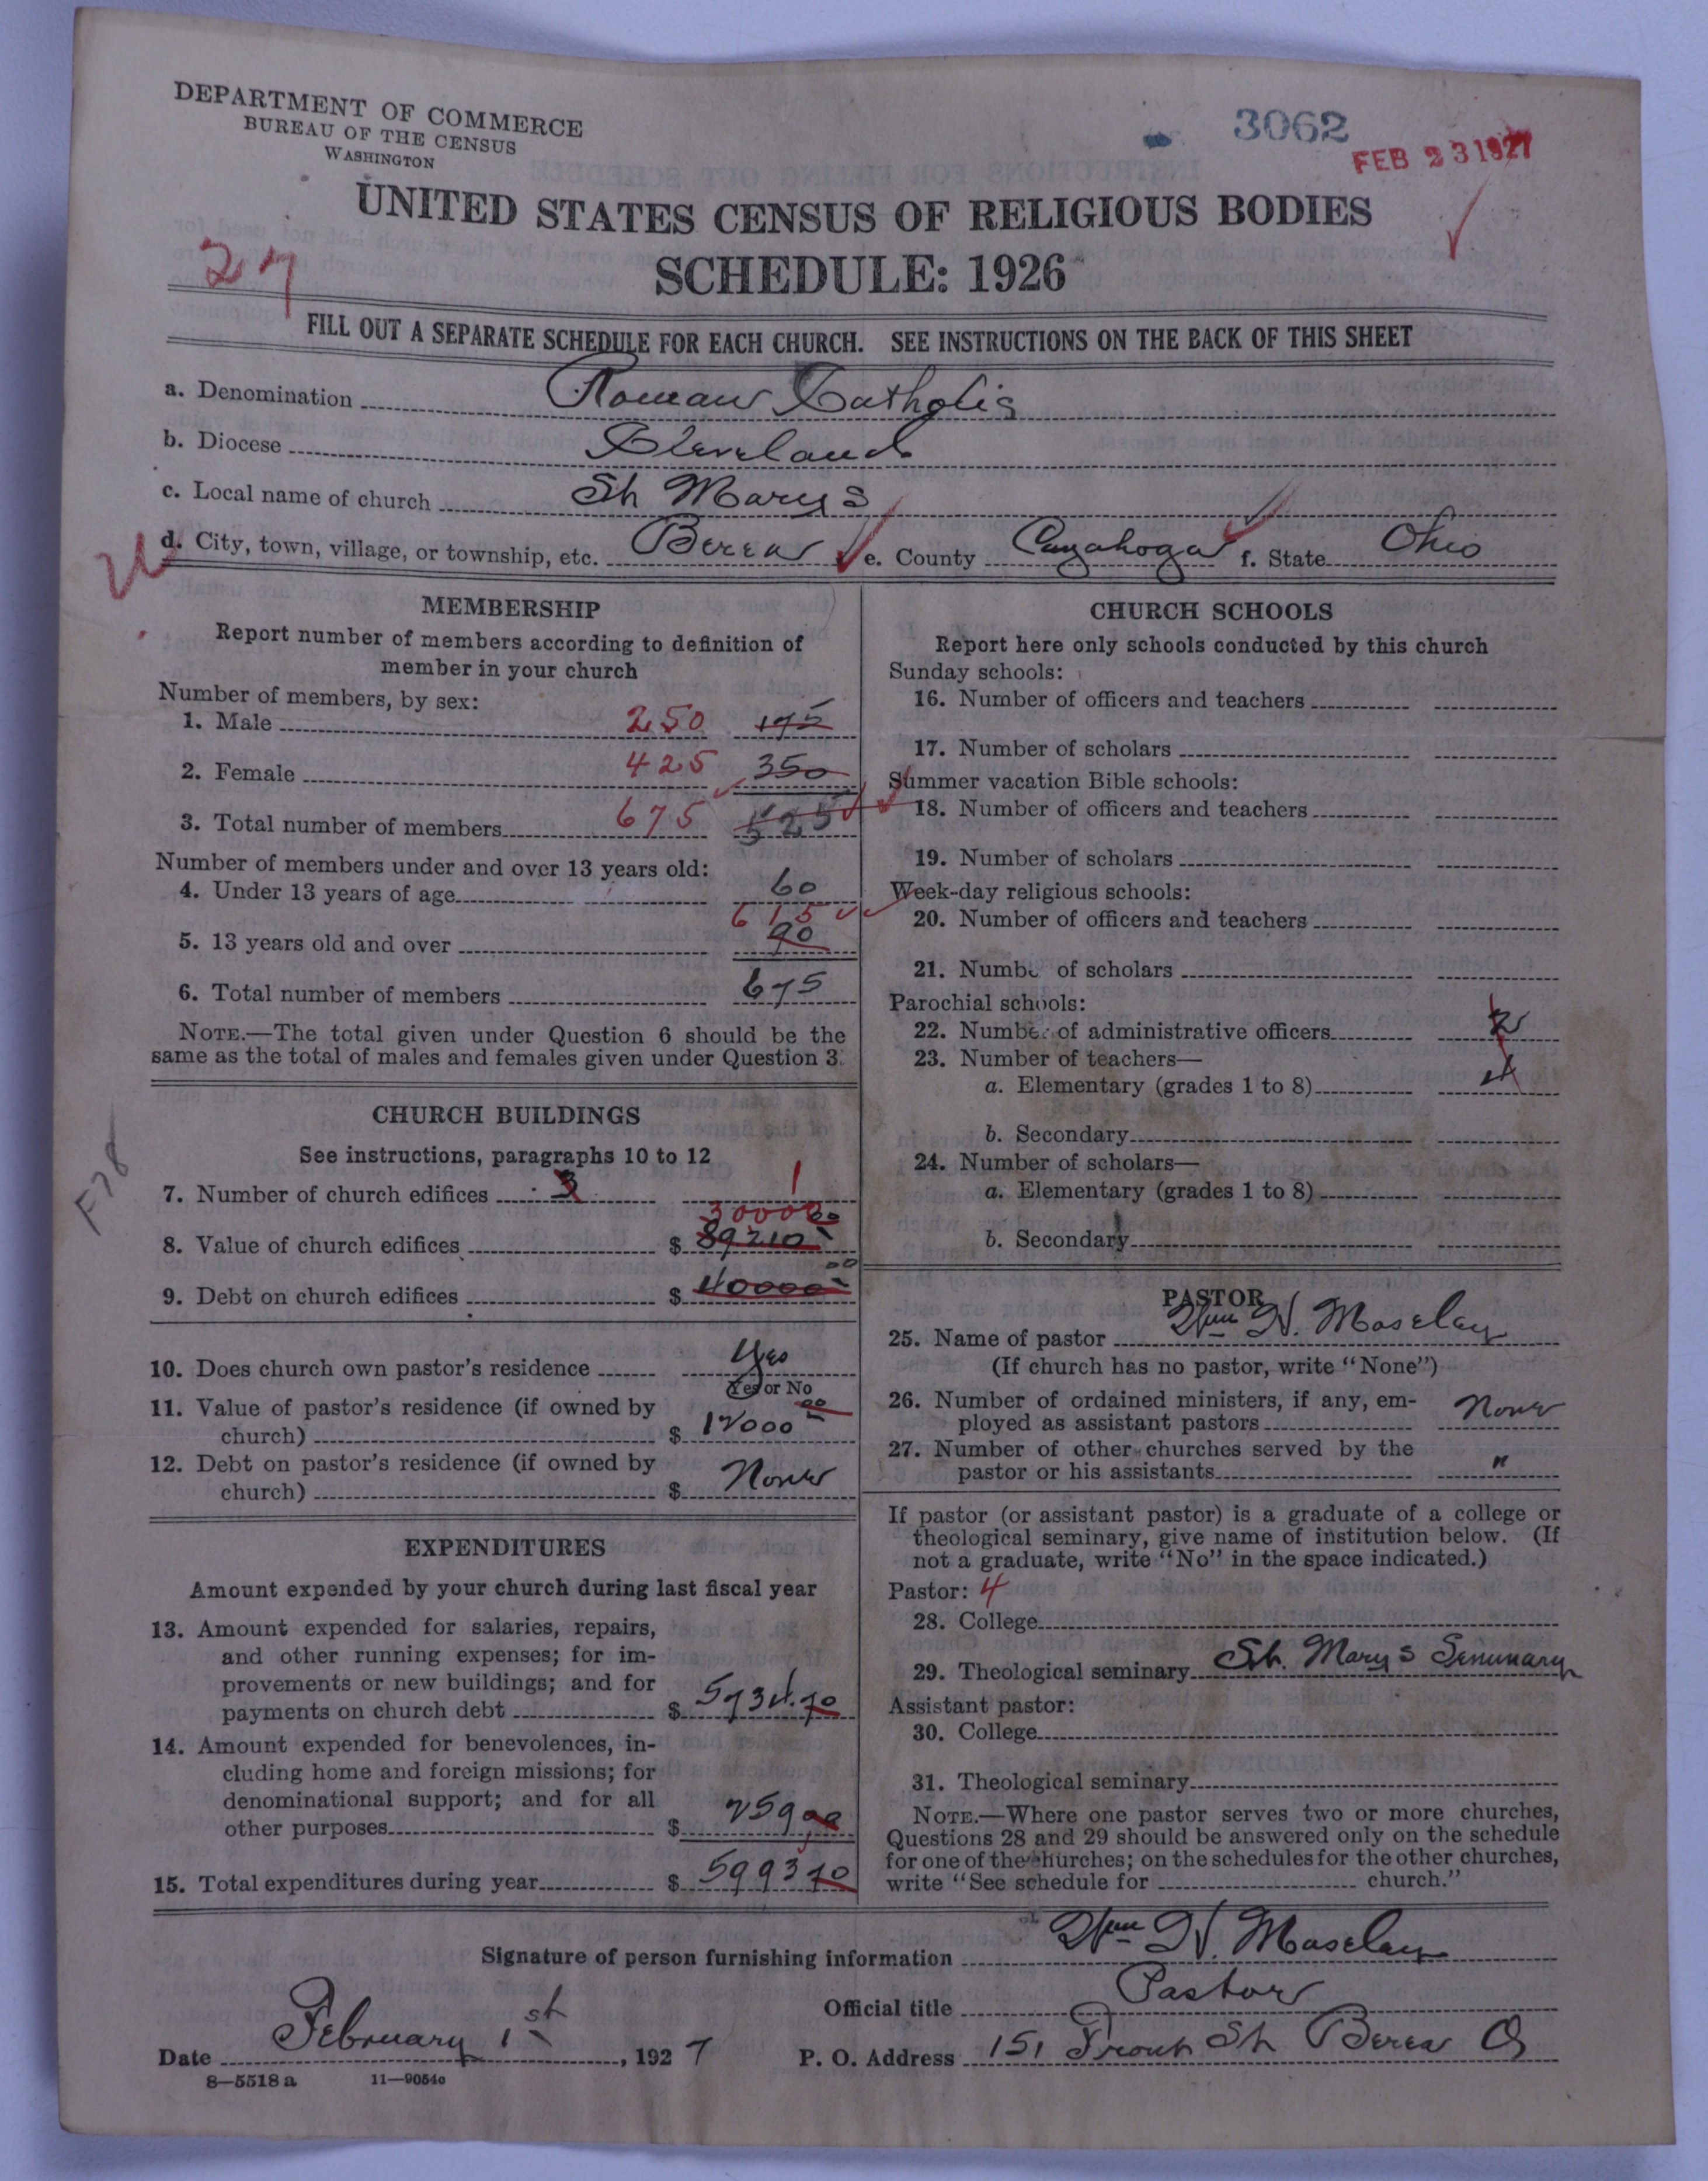 DEPARTMENT OF COMMERCE
BUREAU OF THE CENSUS
WASHINGTON
3062
FEB 23 1927
UNITED STATES CENSUS OF RELIGIOUS BODIES
27
SCHEDULE: 1926
FILL OUT A SEPARATE SCHEDULE FOR EACH CHURCH. SEE INSTRUCTIONS ON THE BACK OF THIS SHEET
a. Denomination Roman Catholic
b. Diocese Cleveland
c. Local name of church St Marys
d. City, town, village, or township, etc. Berea e. County Cuyahoga f. State Ohio
MEMBERSHIP
Report number of members according to definition of
member in your church
Number of members, by sex:
1. Male 250 175
2. Female 425 350
3. Total number of members 675 525
Number of members under and over 13 years old:
4. Under 13 years of age 60
615
5. 13 years old and over 90
6. Total number of members 675
NOTE.—The total given under Question 6 should be the
same as the total of males and females given under Question 3.
CHURCH BUILDINGS
See instructions, paragraphs 10 to 12
7. Number of church edifices 3 1
30000
8. Value of church edifices $ 89210 00
9. Debt on church edifices $ 40000 00
10. Does church own pastor's residence Yes
Yes or No
11. Value of pastor's residence (if owned by
church) $ 12000 00
12. Debt on pastor's residence (if owned by
church) $ None
EXPENDITURES
Amount expended by your church during last fiscal year
13. Amount expended for salaries, repairs,
and other running expenses; for im-
provements or new buildings; and for
payments on church debt $ 5734.70
14. Amount expended for benevolences, in-
cluding home and foreign missions; for
denominational support; and for all
other purposes $ 259 00
15. Total expenditures during year $ 5993 70
F78
CHURCH SCHOOLS
Report here only schools conducted by this church
Sunday schools:
16. Number of officers and teachers
17. Number of scholars
Summer vacation Bible schools:
18. Number of officers and teachers
19. Number of scholars
Week-day religious schools:
20. Number of officers and teachers
21. Number of scholars
Parochial schools:
22. Number of administrative officers 2
23. Number of teachers—
a. Elementary (grades 1 to 8) 4
b. Secondary
24. Number of scholars—
a. Elementary (grades 1 to 8)
b. Secondary
PASTOR
25. Name of pastor Wm H. Moseley
(If church has no pastor, write "None")
26. Number of ordained ministers, if any, em-
ployed as assistant pastors None
27. Number of other churches served by the
pastor or his assistants "
If pastor (or assistant pastor) is a graduate of a college or
theological seminary, give name of institution below. (If
not a graduate, write "No" in the space indicated.)
Pastor: 4
28. College
29. Theological seminary St. Marys Seminary
Assistant pastor:
30. College
31. Theological seminary
NOTE.—Where one pastor serves two or more churches,
Questions 28 and 29 should be answered only on the schedule
for one of the churches; on the schedules for the other churches,
write "See schedule for church."
Signature of person furnishing information Wm H. Moseley
Official title Pastor
Date February 1st, 1927 P. O. Address 151 Front St Berea O
8—5518 a 11—9054c